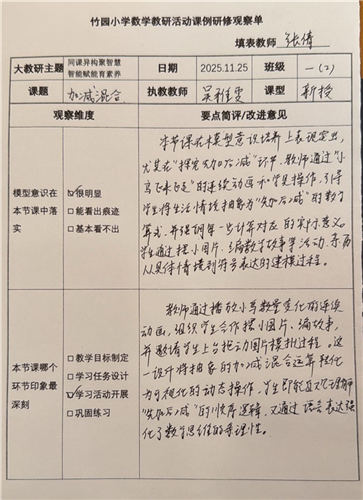 竹园小学数学教研活动课例研修观察单
填表教师 张倩
大教研主题 同课异构聚智慧 智能赋能育素养 日期 2025.11.25 班级 一(2)
课题 加减混合 执教教师 吴 雯 课型 新授
观察维度 要点简评/改进意见
模型意识在本节课中落实
☑很明显
□能看出痕迹
□基本看不出
本节课在模型意识培养上表现突出,
尤其在“探究先加后减”环节,教师通过“小
鸟飞来飞走”的连续动画和学具操作,引导
学生将生活情境抽象为“先加后减”的数学
算式,并强调每一步计算对应的实际意义。
学生通过摆小图片、编数学故事等活动,
从具体情境到符号表达的建模过程。
本节课哪个环节印象最深刻
□教学目标制定
□学习任务设计
☑学习活动开展
□巩固练习
教师通过播放小鸟数量变化的连续
动画,组织学生合作摆小图片、编故事,
并邀请学生上台拖动图片模拟过程。这
一设计将抽象的加减混合运算转化
为可视化的动态操作,学生即能直观理解
“先加后减”的顺序逻辑,又通过语言表达强
化了数学思维的条理性。